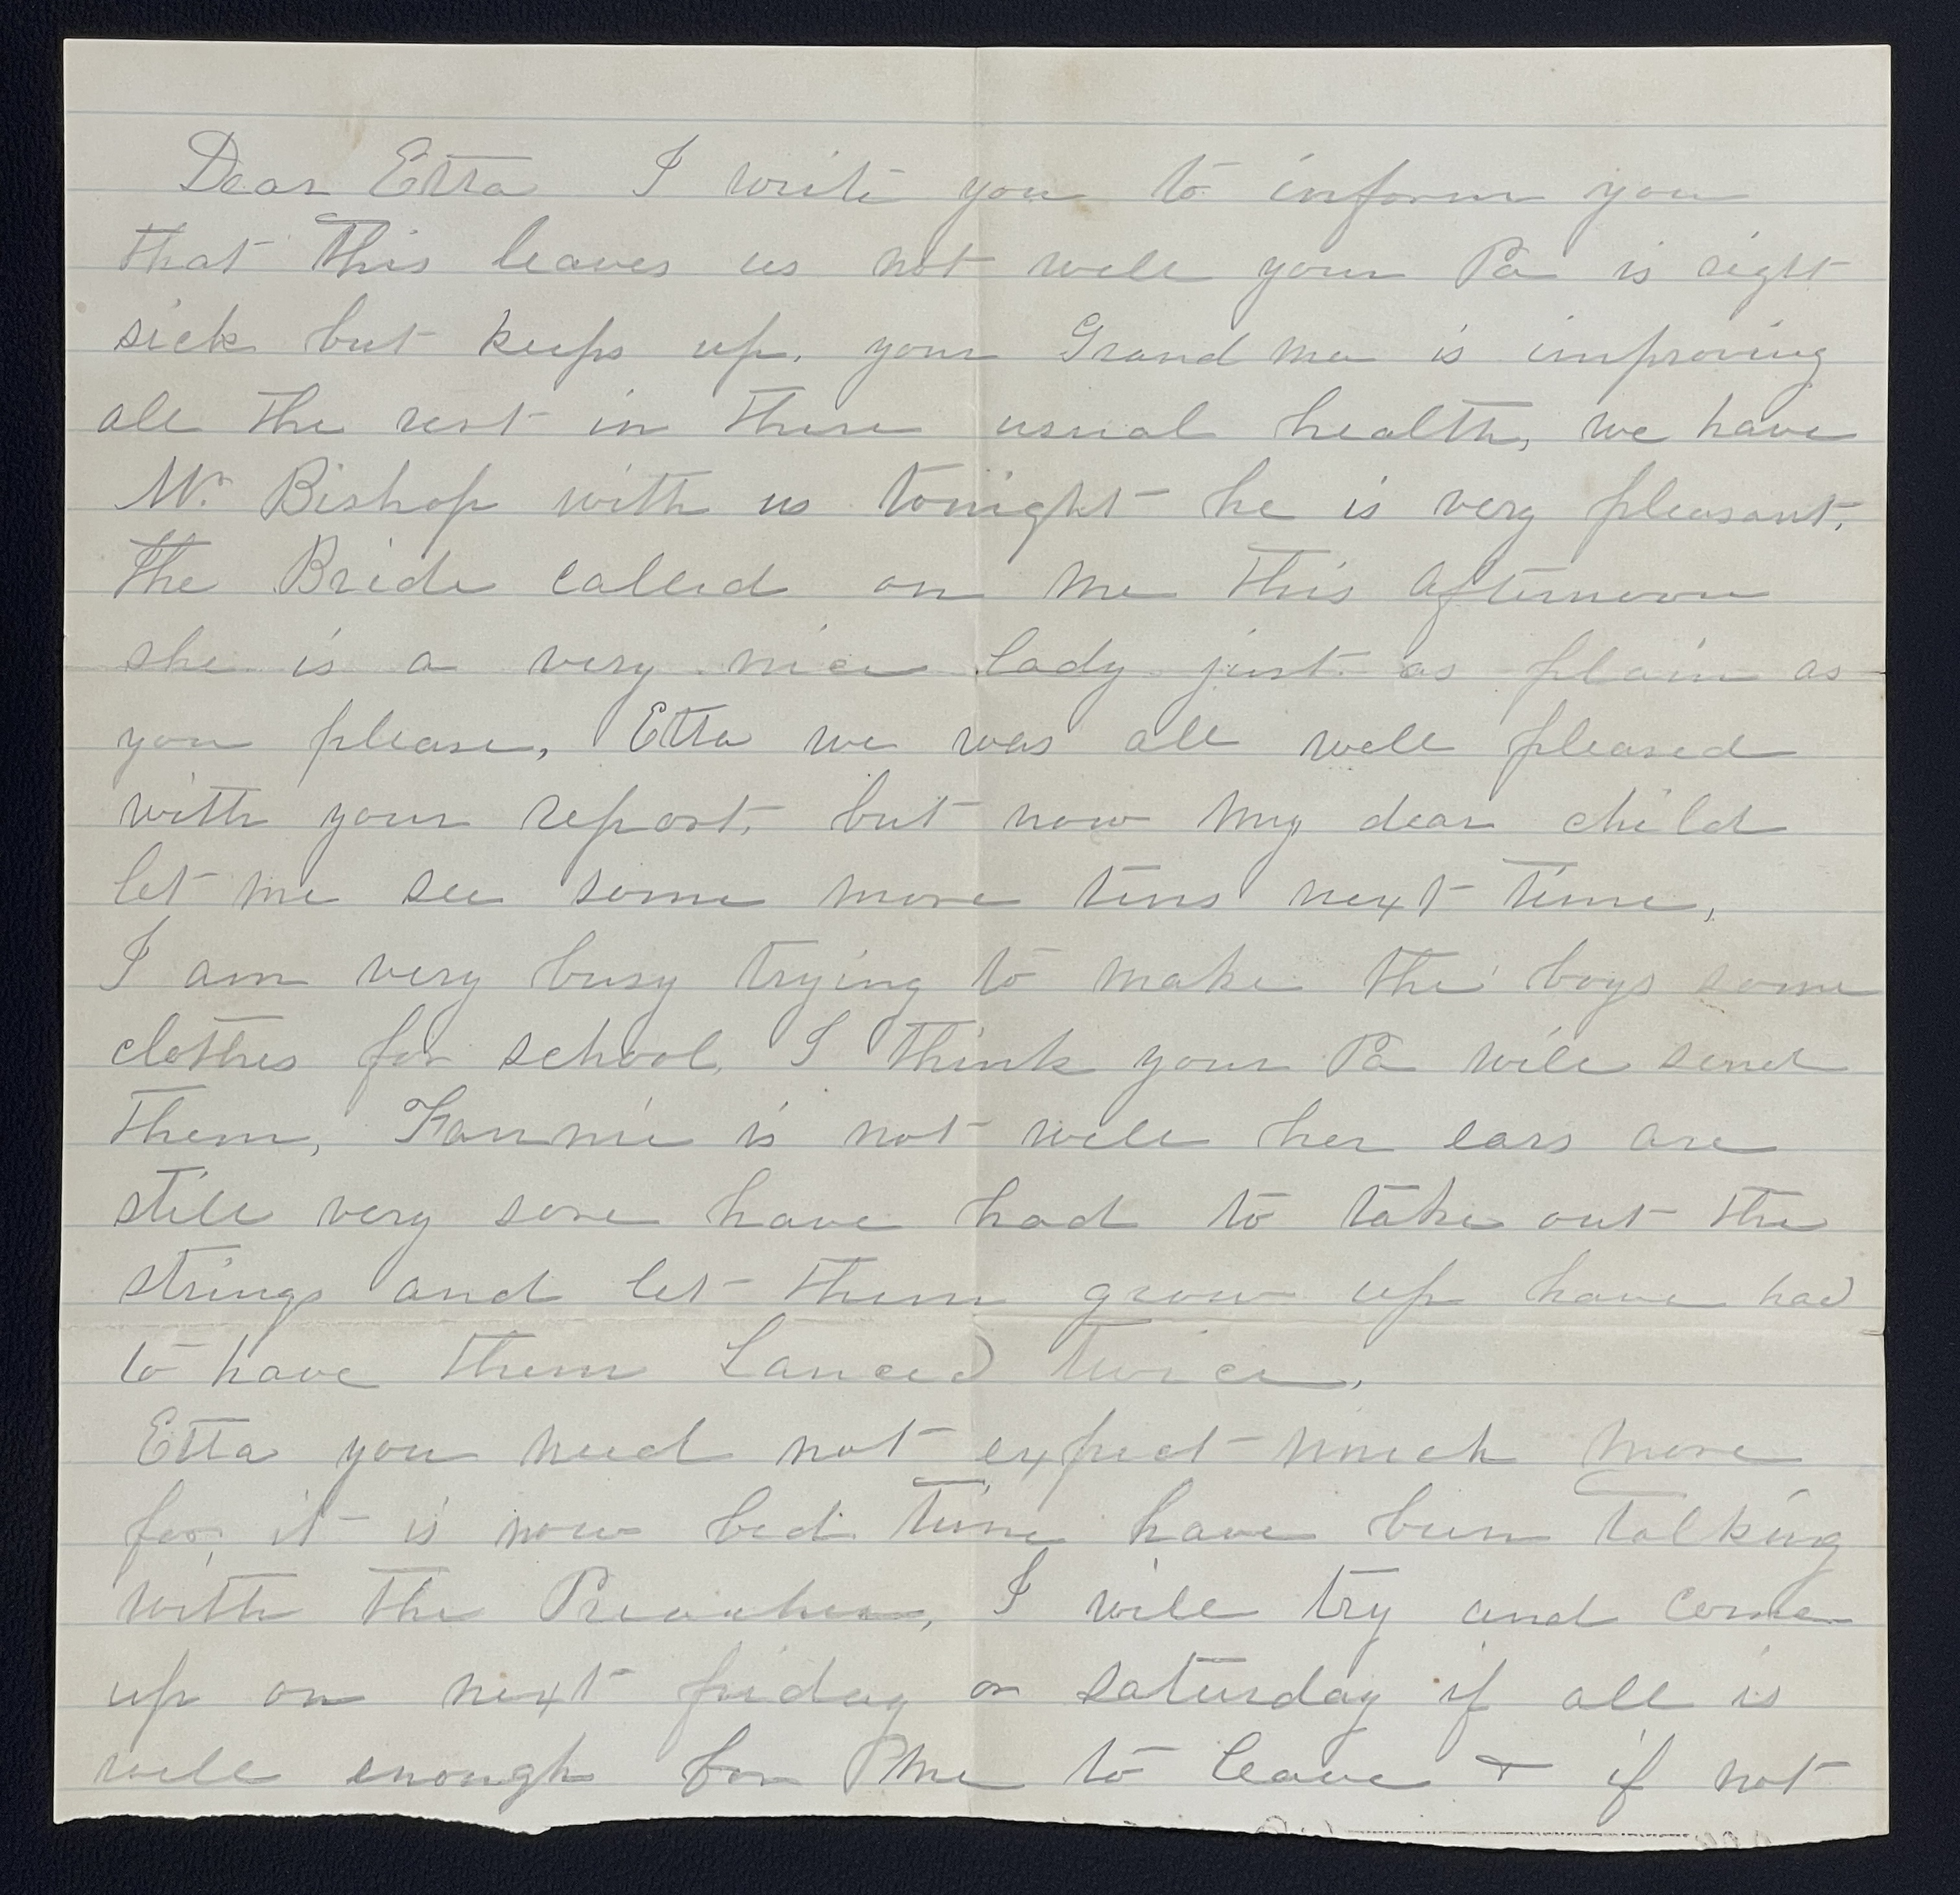 Dear Etta I write you to inform you
that this leaves us not well your Pa is right
sick but keeps up. your Grand ma is improving
all the rest in there usual health, we have
Mr. Bishop with us tonight he is very pleasant.
the Bride called on me this afternoon
she is a very nice lady just as plain as
you please, Etta we was all well pleased
with your report, but now my dear child
let me see some more tens next time,
I am very busy trying to make the boys some
clothes for school, I think your Pa will send
them, Fannie is not well her ears are
still very sore have had to take out the
strings and let them grow up have had
to have them Lanced twice,
Etta you need not expect much more
for, it is now bed time have been talking
with the Preacher, I will try and come
up on next friday or saturday if all is
well enough for me to leave + if not